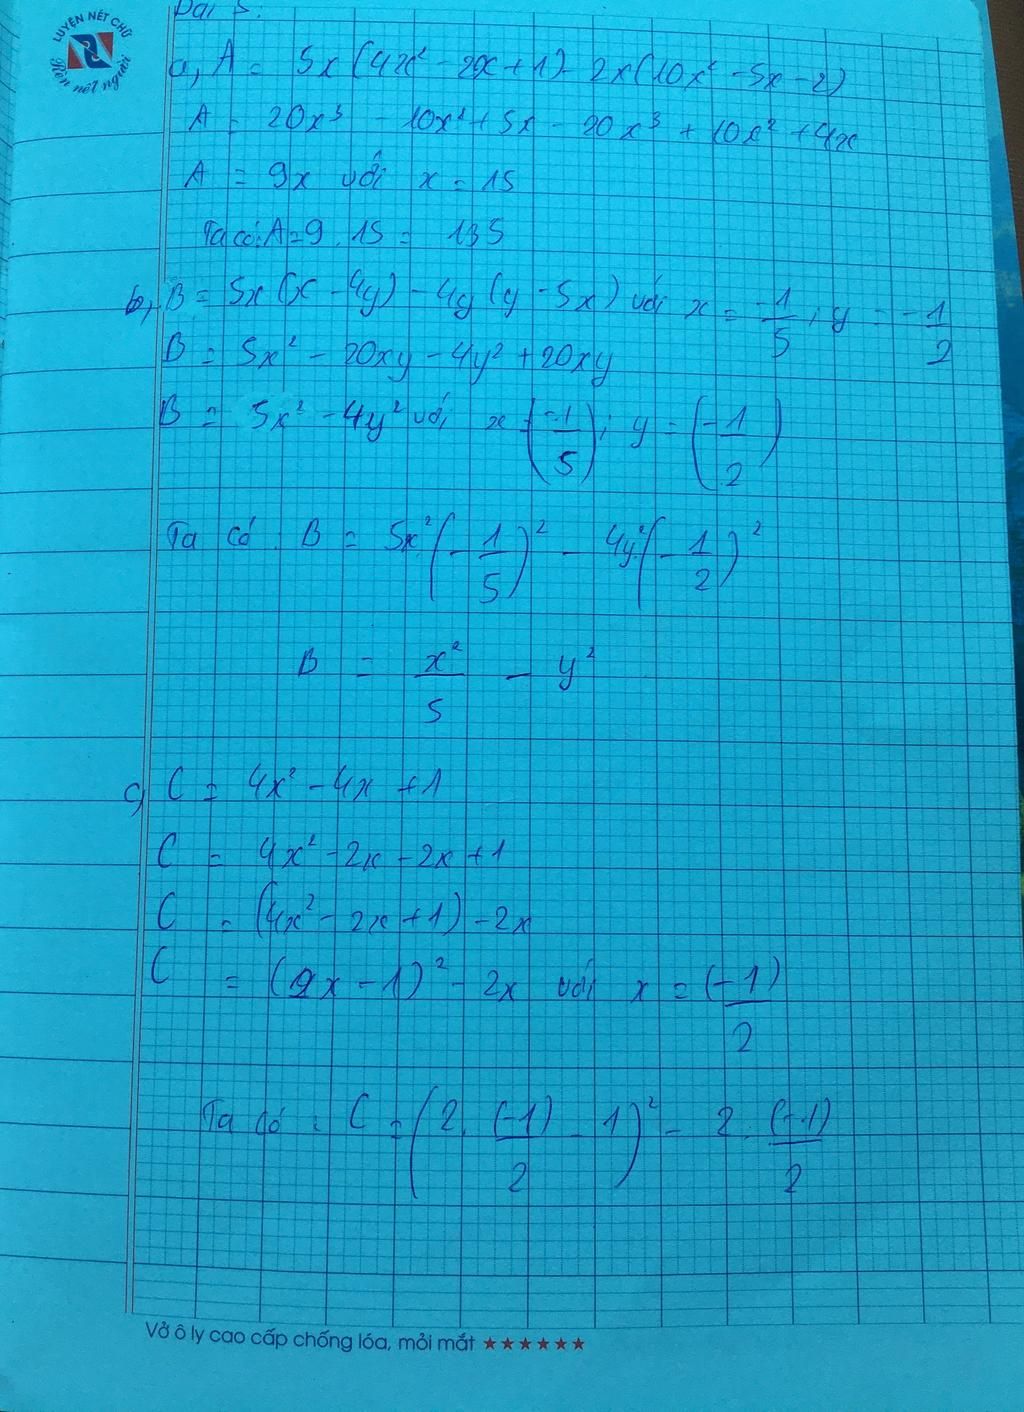 LUYỆN NÉT CHỮ
Rèn nết người
Bài 5:
a, A = 5x(4x² - 2x + 1) - 2x(10x² - 5x - 2)
A = 20x³ - 10x² + 5x - 20x³ + 10x² + 4x
A = 9x với x = 15
Ta có: A = 9 . 15 = 135
b, B = 5x(x - 4y) - 4y(y - 5x) với x = -1/5 ; y = -1/2
B = 5x² - 20xy - 4y² + 20xy
B = 5x² - 4y² với x = (-1/5) ; y = (-1/2)
Ta có : B = 5x²(-1/5)² - 4y²(-1/2)²
B = x²/5 - y²
c, C = 4x² - 4x + 1
C = 4x² - 2x - 2x + 1
C = (4x² - 2x + 1) - 2x
C = (2x - 1)² - 2x với x = (-1)/2
Ta có : C = (2 . (-1)/2 - 1)² - 2 . (-1)/2
Vở ô ly cao cấp chống lóa, mỏi mắt ★★★★★★